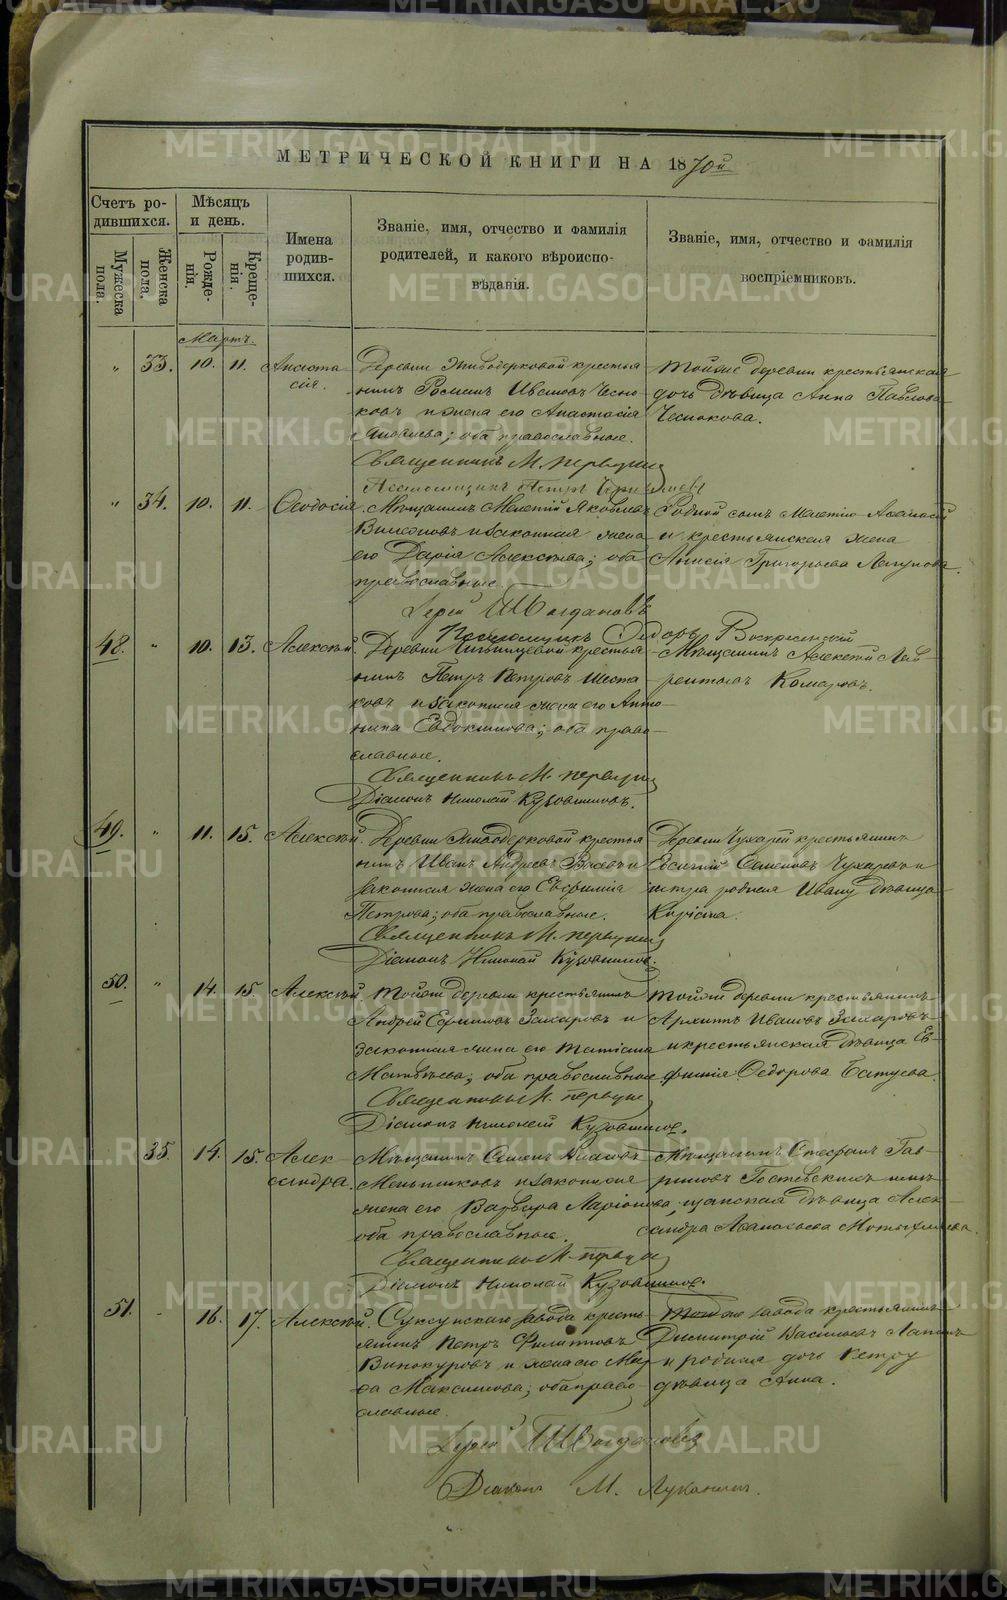 МЕТРИЧЕСКОЙ КНИГИ НА 1870й
Счетъ ро-
дившихся.
Мужеска
пола.
Женска
пола.
Мѣсяцъ
и день.
Рожде-
нія.
Креще-
нія.
Имена
родив-
шихся.
Званіе, имя, отчество и фамилія
родителей, и какого вѣроиспо-
вѣданія.
Званіе, имя, отчество и фамилія
воспріемниковъ.
Мартъ.
" 33. 10. 11. Анаста
сія.
Деревни крестья
нинъ Иванов Чесно
ковъ и жена его Анастасія
оба православные.
Священникъ М. Первушин
Тойже деревни крестьянская
дочь дѣвица Анна Павлова
Чеснокова.
" 34. 10. 11. Ѳеодосія.
Мѣщанинъ Мелетій Яковлевъ
и законная жена
его Дарія Алексѣева; оба
православные.
Іерей Ш Богдановъ
Ѳедоръ Воскресенскій
Родной сынъ
и крестьянская жена
Григорьева
48. " 10. 13. Алексѣй.
Деревни крестья
нинъ Петръ Петровъ Шеста
ковъ и законная жена его Анто
нина Евдокимова; оба право-
славные.
Священникъ М. Первушин
Діаконъ Николай Кузовниковъ.
Мѣщанинъ Алексѣй Лав-
рентьевъ Комаровъ.
49. " 11. 15. Алексѣй.
Деревни крестья
нинъ Иванъ Андреевъ и
законная жена его Евфимія
Петрова; оба православные.
Священникъ М. Первушин
Діаконъ Николай Кузовниковъ.
Деревни Чухарей крестьянинъ
Евсигній Семеновъ Чухаревъ и
сестра родная Ивану дѣвица
50. " 14. 15. Алексѣй.
Тойже деревни крестьянинъ
Андрей Ефимовъ Захаровъ и
законная жена его Татіана
Матвѣева; оба православные.
Священникъ М. Первушин
Діаконъ Николай Кузовниковъ.
Тойже деревни крестьянинъ
Архипъ Ивановъ Захаровъ
и крестьянская дѣвица Ев-
фимія Ѳедорова Батуева.
35. 14. 15. Алек-
сандра.
Мѣщанинъ Семенъ
Меньшиковъ и законная
жена его Варвара Ларіонова,
оба православные.
Священникъ М. Первушин
Діаконъ Николай Кузовниковъ.
Мѣщанинъ Стефанъ Гав-
риловъ Гостевскихъ и мѣ-
щанская дѣвица Алек-
сандра Аѳанасьева
51. 16. 17. Алексѣй.
Суксунскаго завода кресть
янинъ Петръ Филипповъ
Винокуровъ и жена его Мар
ѳа Максимова; оба право-
славные.
Іерей Ш Богдановъ
Діаконъ М. Луканинъ.
Тогоже завода крестьянинъ
Димитрій Васильевъ Лапинъ
и родная дочь Петру
дѣвица Анна.
METRIKI.GASO-URAL.RU